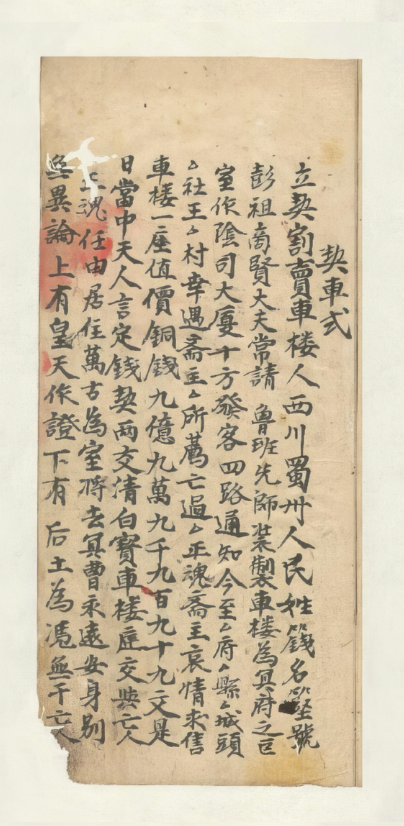 契車式
立契割賣車楼人西川蜀州人民姓籛名鏗號
彭祖商賢大夫常請 魯班先師装製車楼為冥府之巨
室作陰司大厦十方發客四路通知今至厶府厶縣厶城頭
厶社王厶村幸遇斋主厶所薦亡過厶正魂斋主哀情求售
車楼一座值價銅錢九億九萬九千九百九十九文是
日當中天人言定錢契両交清白寳車楼庭交與亡人
正魂任由居住萬古為室将去冥曹永遠安身别
無異論上有皇天作證下有 后土為憑無干亡人